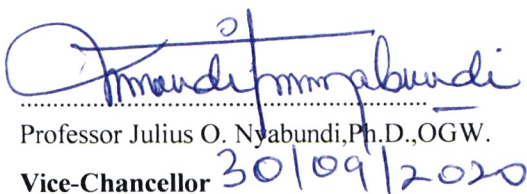 Professor Julius O. Nyabundi,Ph.D.,OGW.
Vice-Chancellor 30/09/2020